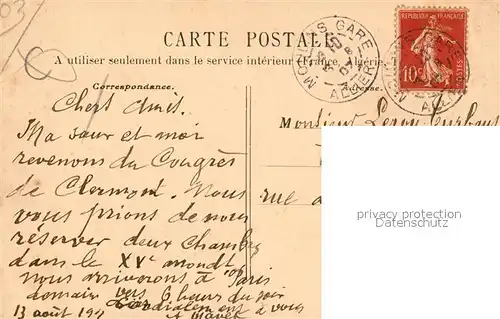 CARTE POSTALE
A utiliser seulement dans le service intérieur (France, Algérie, T
Correspondance.
Adresse.
MOULINS GARE
ALLIER
10c
POSTES
Chers Amis.
Ma sœur et moi
revenons du Congrès
de Clermont. Nous
vous prions de nous
réserver deux Chambres
dans le XVe arrondt
nous arriverons à Paris
demain vers 6 heures du soir
Cordialement à vous
13 août 191
Monsieur Leroy
rue
privacy protection
Datenschutz
03